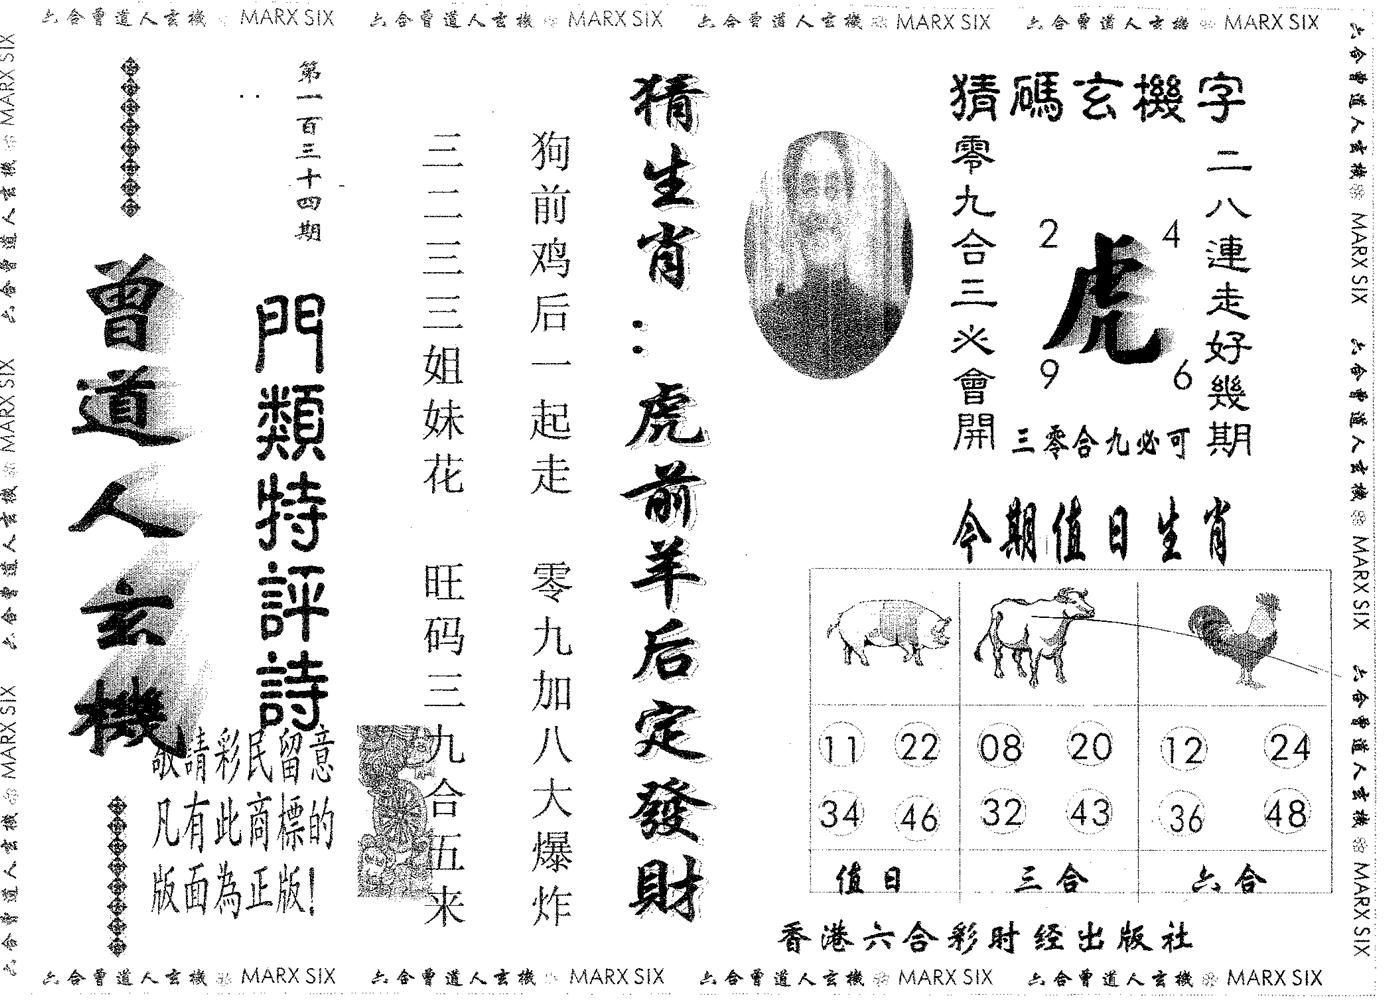 六合曾道人玄機 MARX SIX 六合曾道人玄機 MARX SIX 六合曾道人玄機 MARX SIX 六合曾道人玄機 MARX SIX
六合曾道人玄機 MARX SIX 六合曾道人玄機 MARX SIX 六合曾道人玄機 MARX SIX
猜碼玄機字
二八連走好幾期
零九合三必會開
虎
2 4
9 6
三零合九必可
今期值日生肖
11 22 08 20 12 24
34 46 32 43 36 48
值日 三合 六合
香港六合彩时经出版社
猜生肖:虎前羊后定發財
狗前鸡后一起走 零九加八大爆炸
三二三三姐妹花 旺码三九合五来
第一百三十四期
門類特評詩
曾道人玄機
敬請彩民留意
凡有此商標的
版面為正版!
六合曾道人玄機 MARX SIX 六合曾道人玄機 MARX SIX 六合曾道人玄機 MARX SIX
六合曾道人玄機 MARX SIX 六合曾道人玄機 MARX SIX 六合曾道人玄機 MARX SIX 六合曾道人玄機 MARX SIX